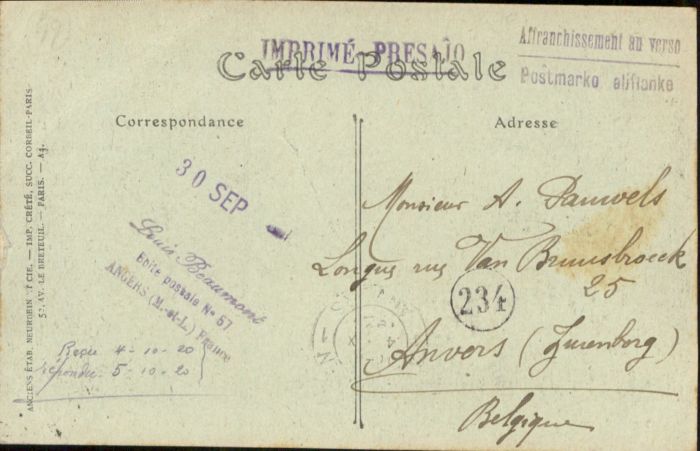 IMPRIMÉ PRESAĴO
Carte Postale
Affranchissement au verso
Postmarko aliflanke
Correspondance
Adresse
30 SEP
Louis Beaumont
Boîte postale N° 57
ANGERS (M.-et-L.) France
Reçue 4-10-20
répondu 5-10-20
Monsieur A. Pauwels
Longue rue Van Bruusbroeck
25
234
Anvers (Zurenborg)
Belgique
ANCIENS ÉTAB. NEURDEIN ET CIE. — IMP. CRÉTÉ, SUCC. CORBEIL-PARIS
52, AV. LE BRETEUIL. — PARIS. — A3.